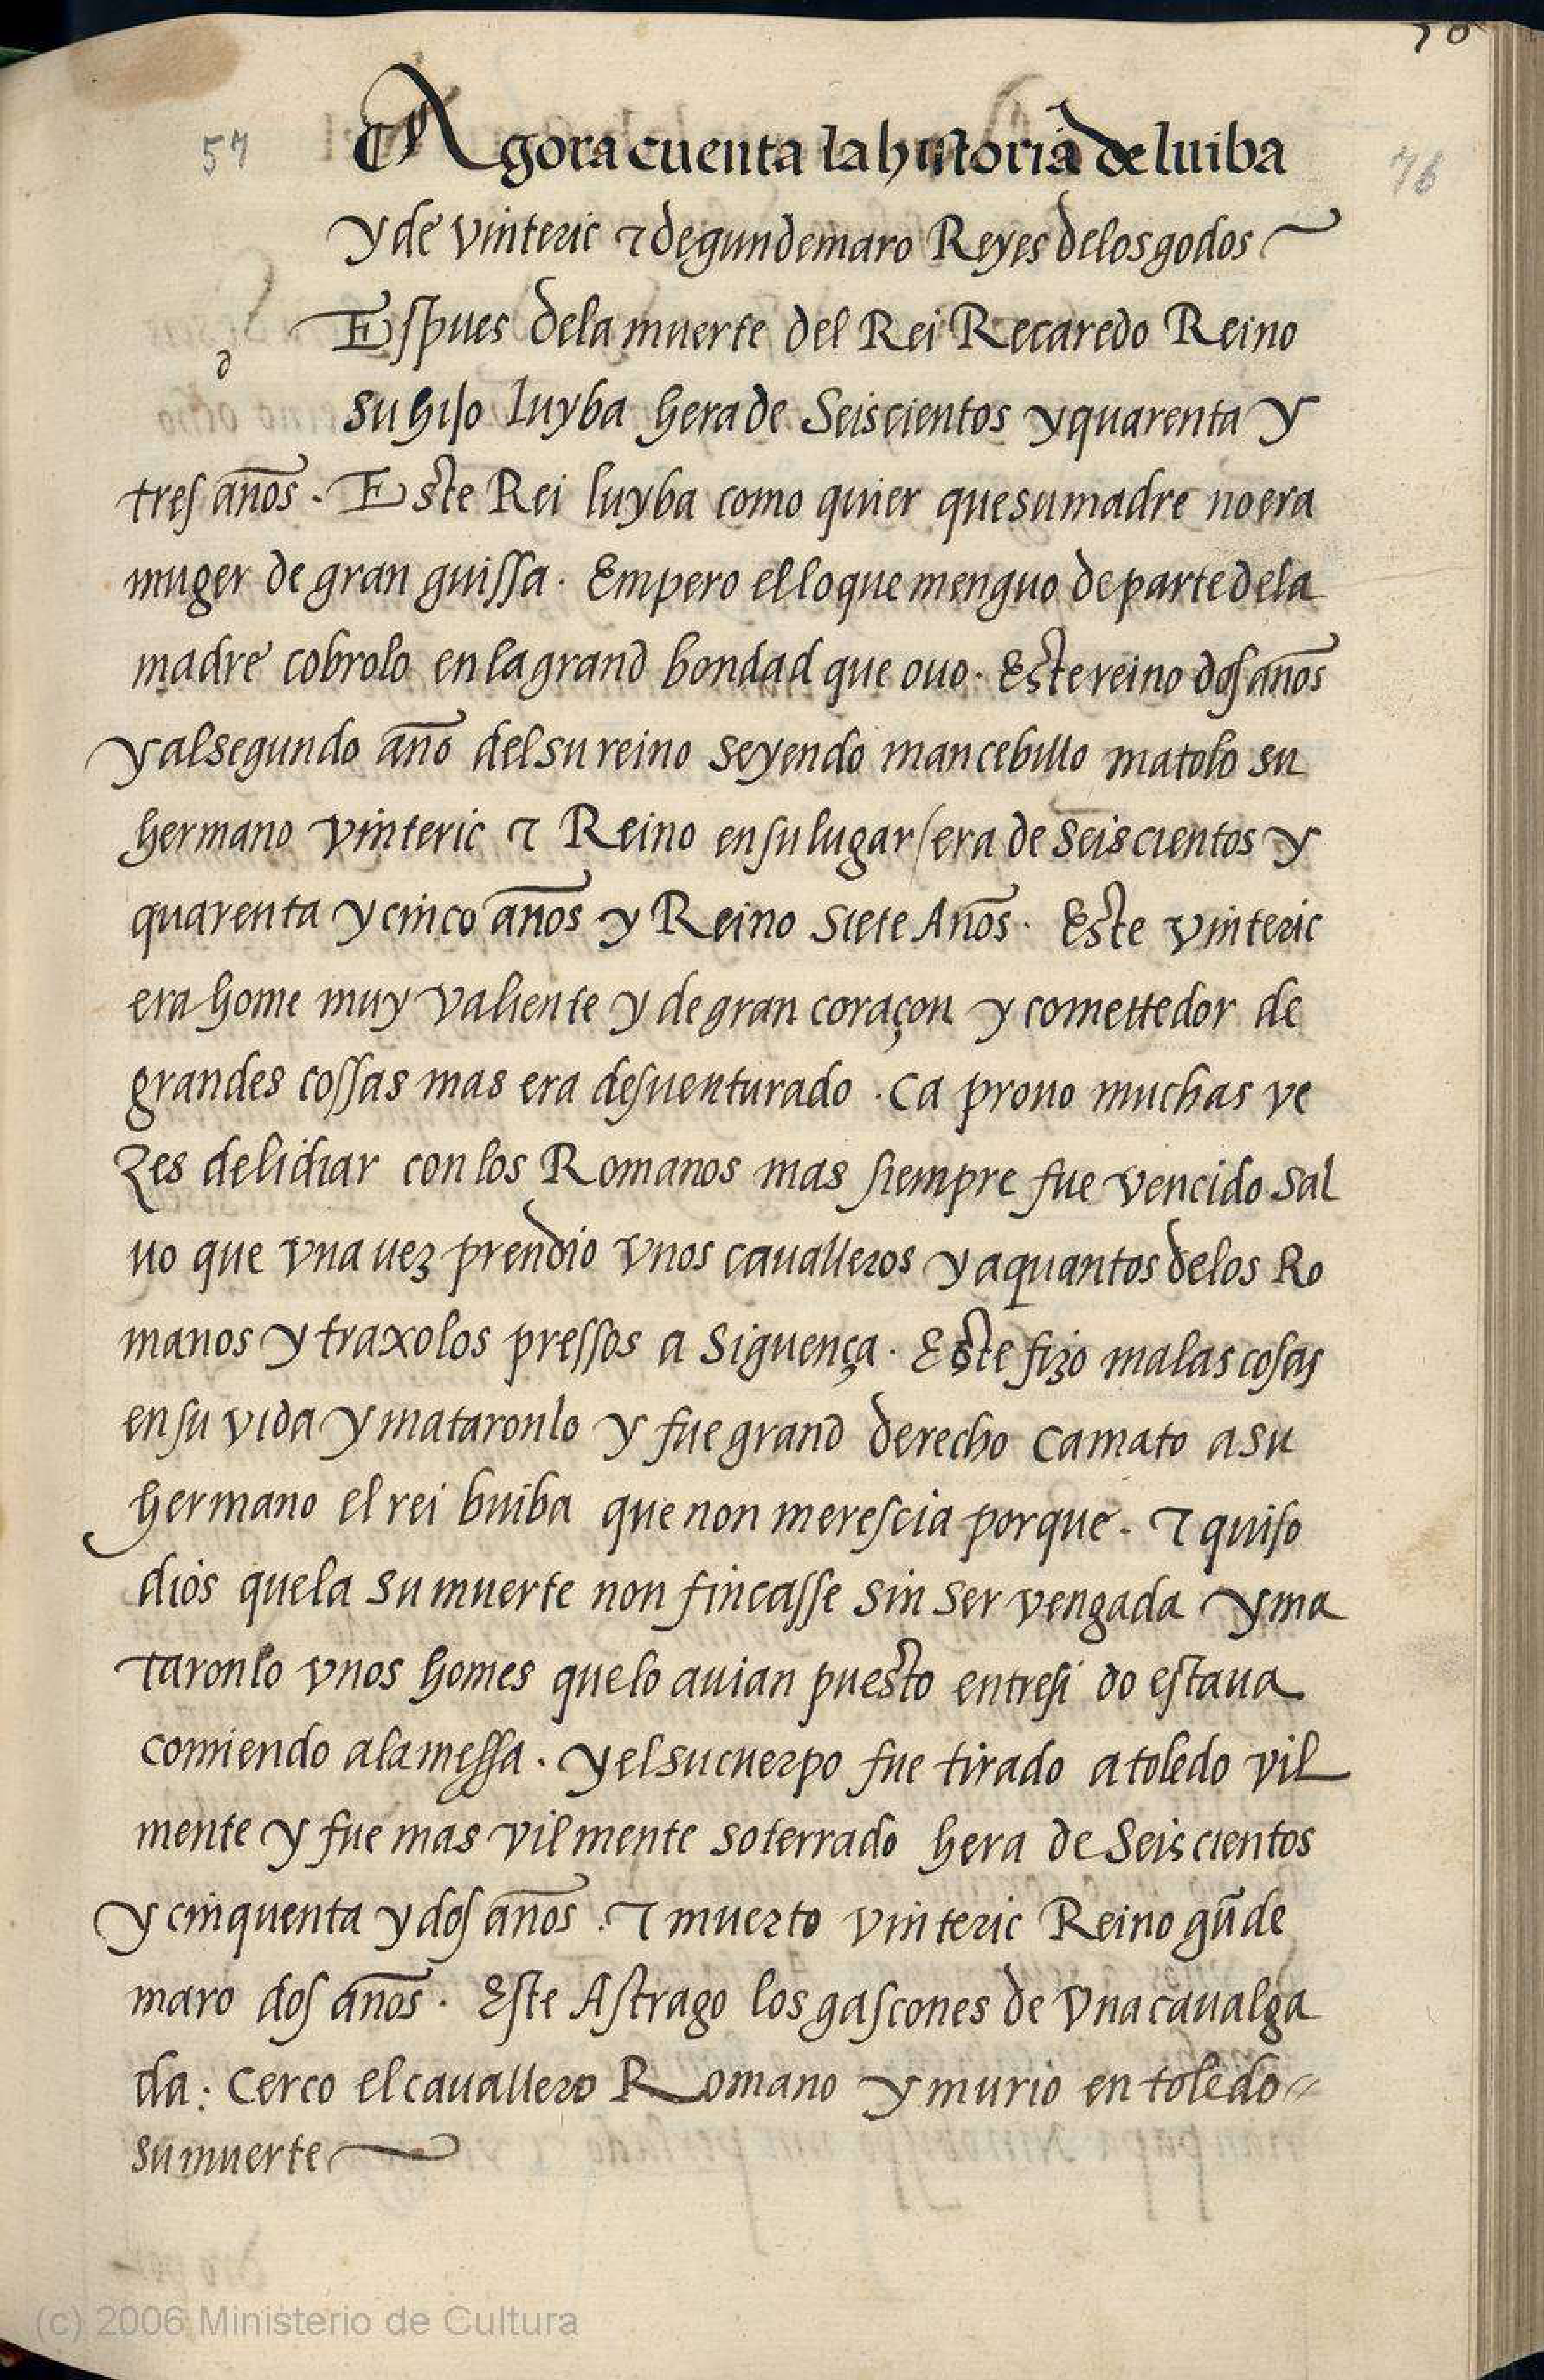 57
76
Agora cuenta la historia de luiba
y de vinteric ⁊ de gundemaro Reyes de los godos
d
Espues dela muerte del Rei Recaredo Reino
su hijo luyba hera de Seiscientos y quarenta y
tres años. Este Rei luyba como quier que su madre no era
muger de gran guissa. Empero el lo que menguo de parte dela
madre cobrolo en la grand bondad que ouo. Este reino dos años
y al segundo año del su reino seyendo mancebillo matolo su
hermano vinteric ⁊ Reino en su lugar / era de seiscientos y
quarenta y cinco años y Reino siete Años. Este vinteric
era home muy valiente y de gran coraçon y comettedor de
grandes cossas mas era desuenturado. Ca prouo muchas ve
zes de lidiar con los Romanos mas siempre fue vencido sal
uo que vna uez prendio vnos caualleros y aquantos delos Ro
manos y traxolos pressos a Siguença. Este fizo malas cosas
en su vida y mataronlo y fue grand derecho ca mato a su
hermano el rei buiba que non merescia porque. ⁊ quiso
dios que la su muerte non fincasse sin ser vengada y ma
taronlo vnos homes que lo auian puesto entresi do estaua
comiendo a la messa. y el su cuerpo fue tirado a toledo vil
mente y fue mas vilmente soterrado hera de Seiscientos
y cinquenta y dos años. ⁊ muerto vinteric Reino gūde
maro dos años. Este Astrago los gascones de vna caualga
da: Cerco el cauallero Romano y murio en toledo
su muerte
(c) 2006 Ministerio de Cultura